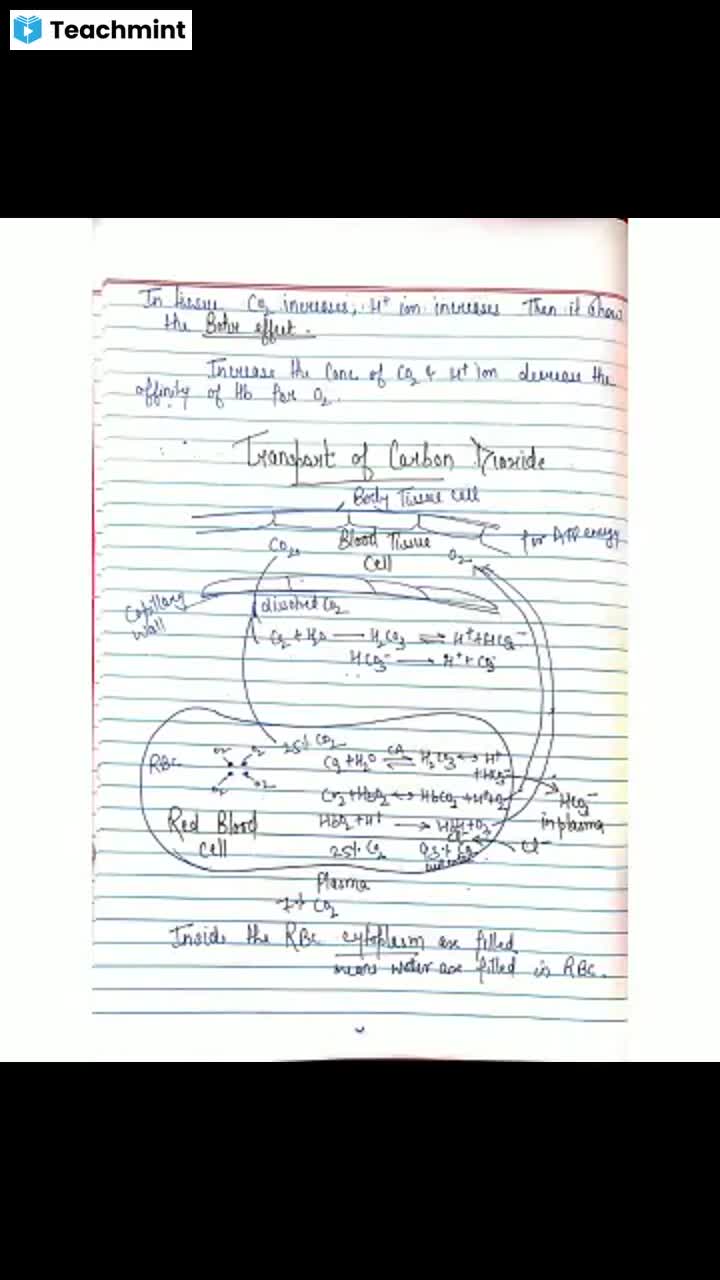 Teachmint
In tissue CO2 increases, H+ ion increases Then it show
the Bohr effect.
Increase the Conc of CO2 & H+ Ion decrease the
affinity of Hb for O2.
Transport of Carbon Dioxide
Body Tissue cell
for ATP energy
CO2
Blood Tissue
Cell
O2
Capillary
wall
dissolved CO2
CO2 + H2O → H2CO3 ⇌ H+ + HCO3-
HCO3- → H+ + CO3-
RBC
O2 O2
O2 O2
25% CO2
CO2 + H2O CA ⇌ H2CO3 ↔ H+
+ HCO3-
CO2 + HbO2 ↔ HbCO2 + H+ + O2
HCO3-
in plasma
Red Blood
Cell
HbO2 + H+ → HbH + O2
Cl-
Cl-
25% CO2
Plasma
7% CO2
Inside the RBC cytoplasm are filled
means water are filled in RBC.